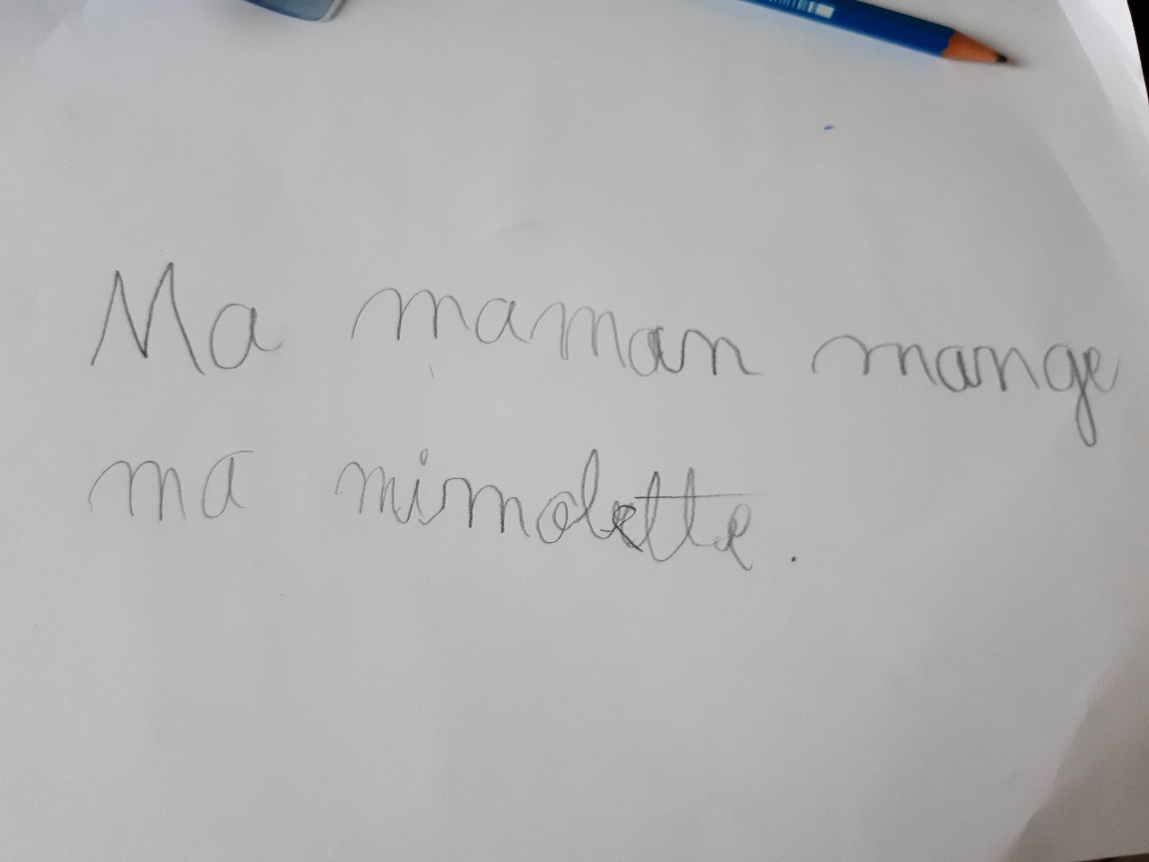 Ma maman mange
ma mimolette.